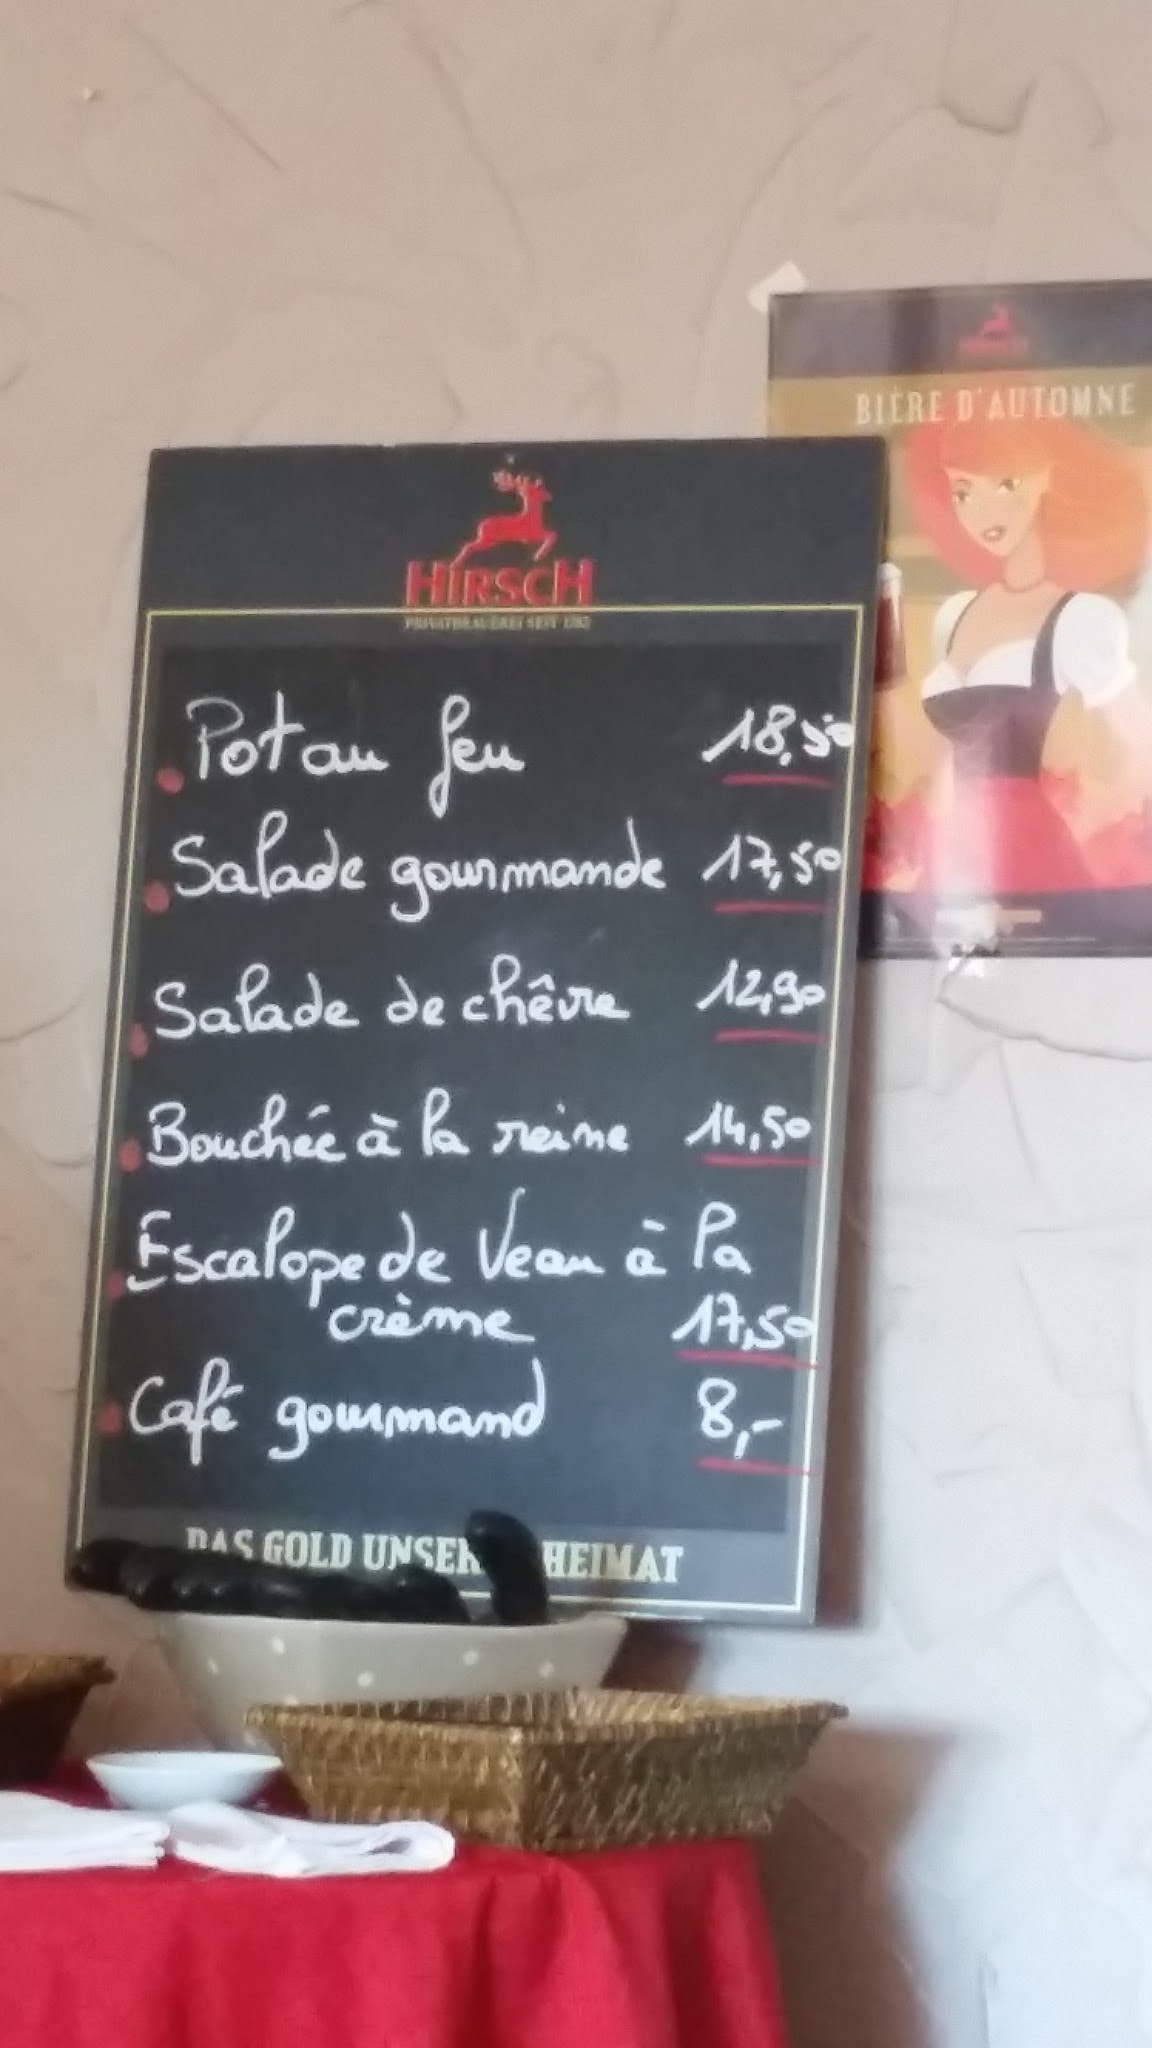 HIRSCH
PRIVATBRAUEREI SEIT 1782
Pot au feu 18,50
Salade gourmande 17,50
Salade de chêvre 12,90
Bouchée à la reine 14,50
Escalope de Veau à la
crème 17,50
Café gourmand 8,-
DAS GOLD UNSER HEIMAT
HIRSCH
BIÈRE D'AUTOMNE